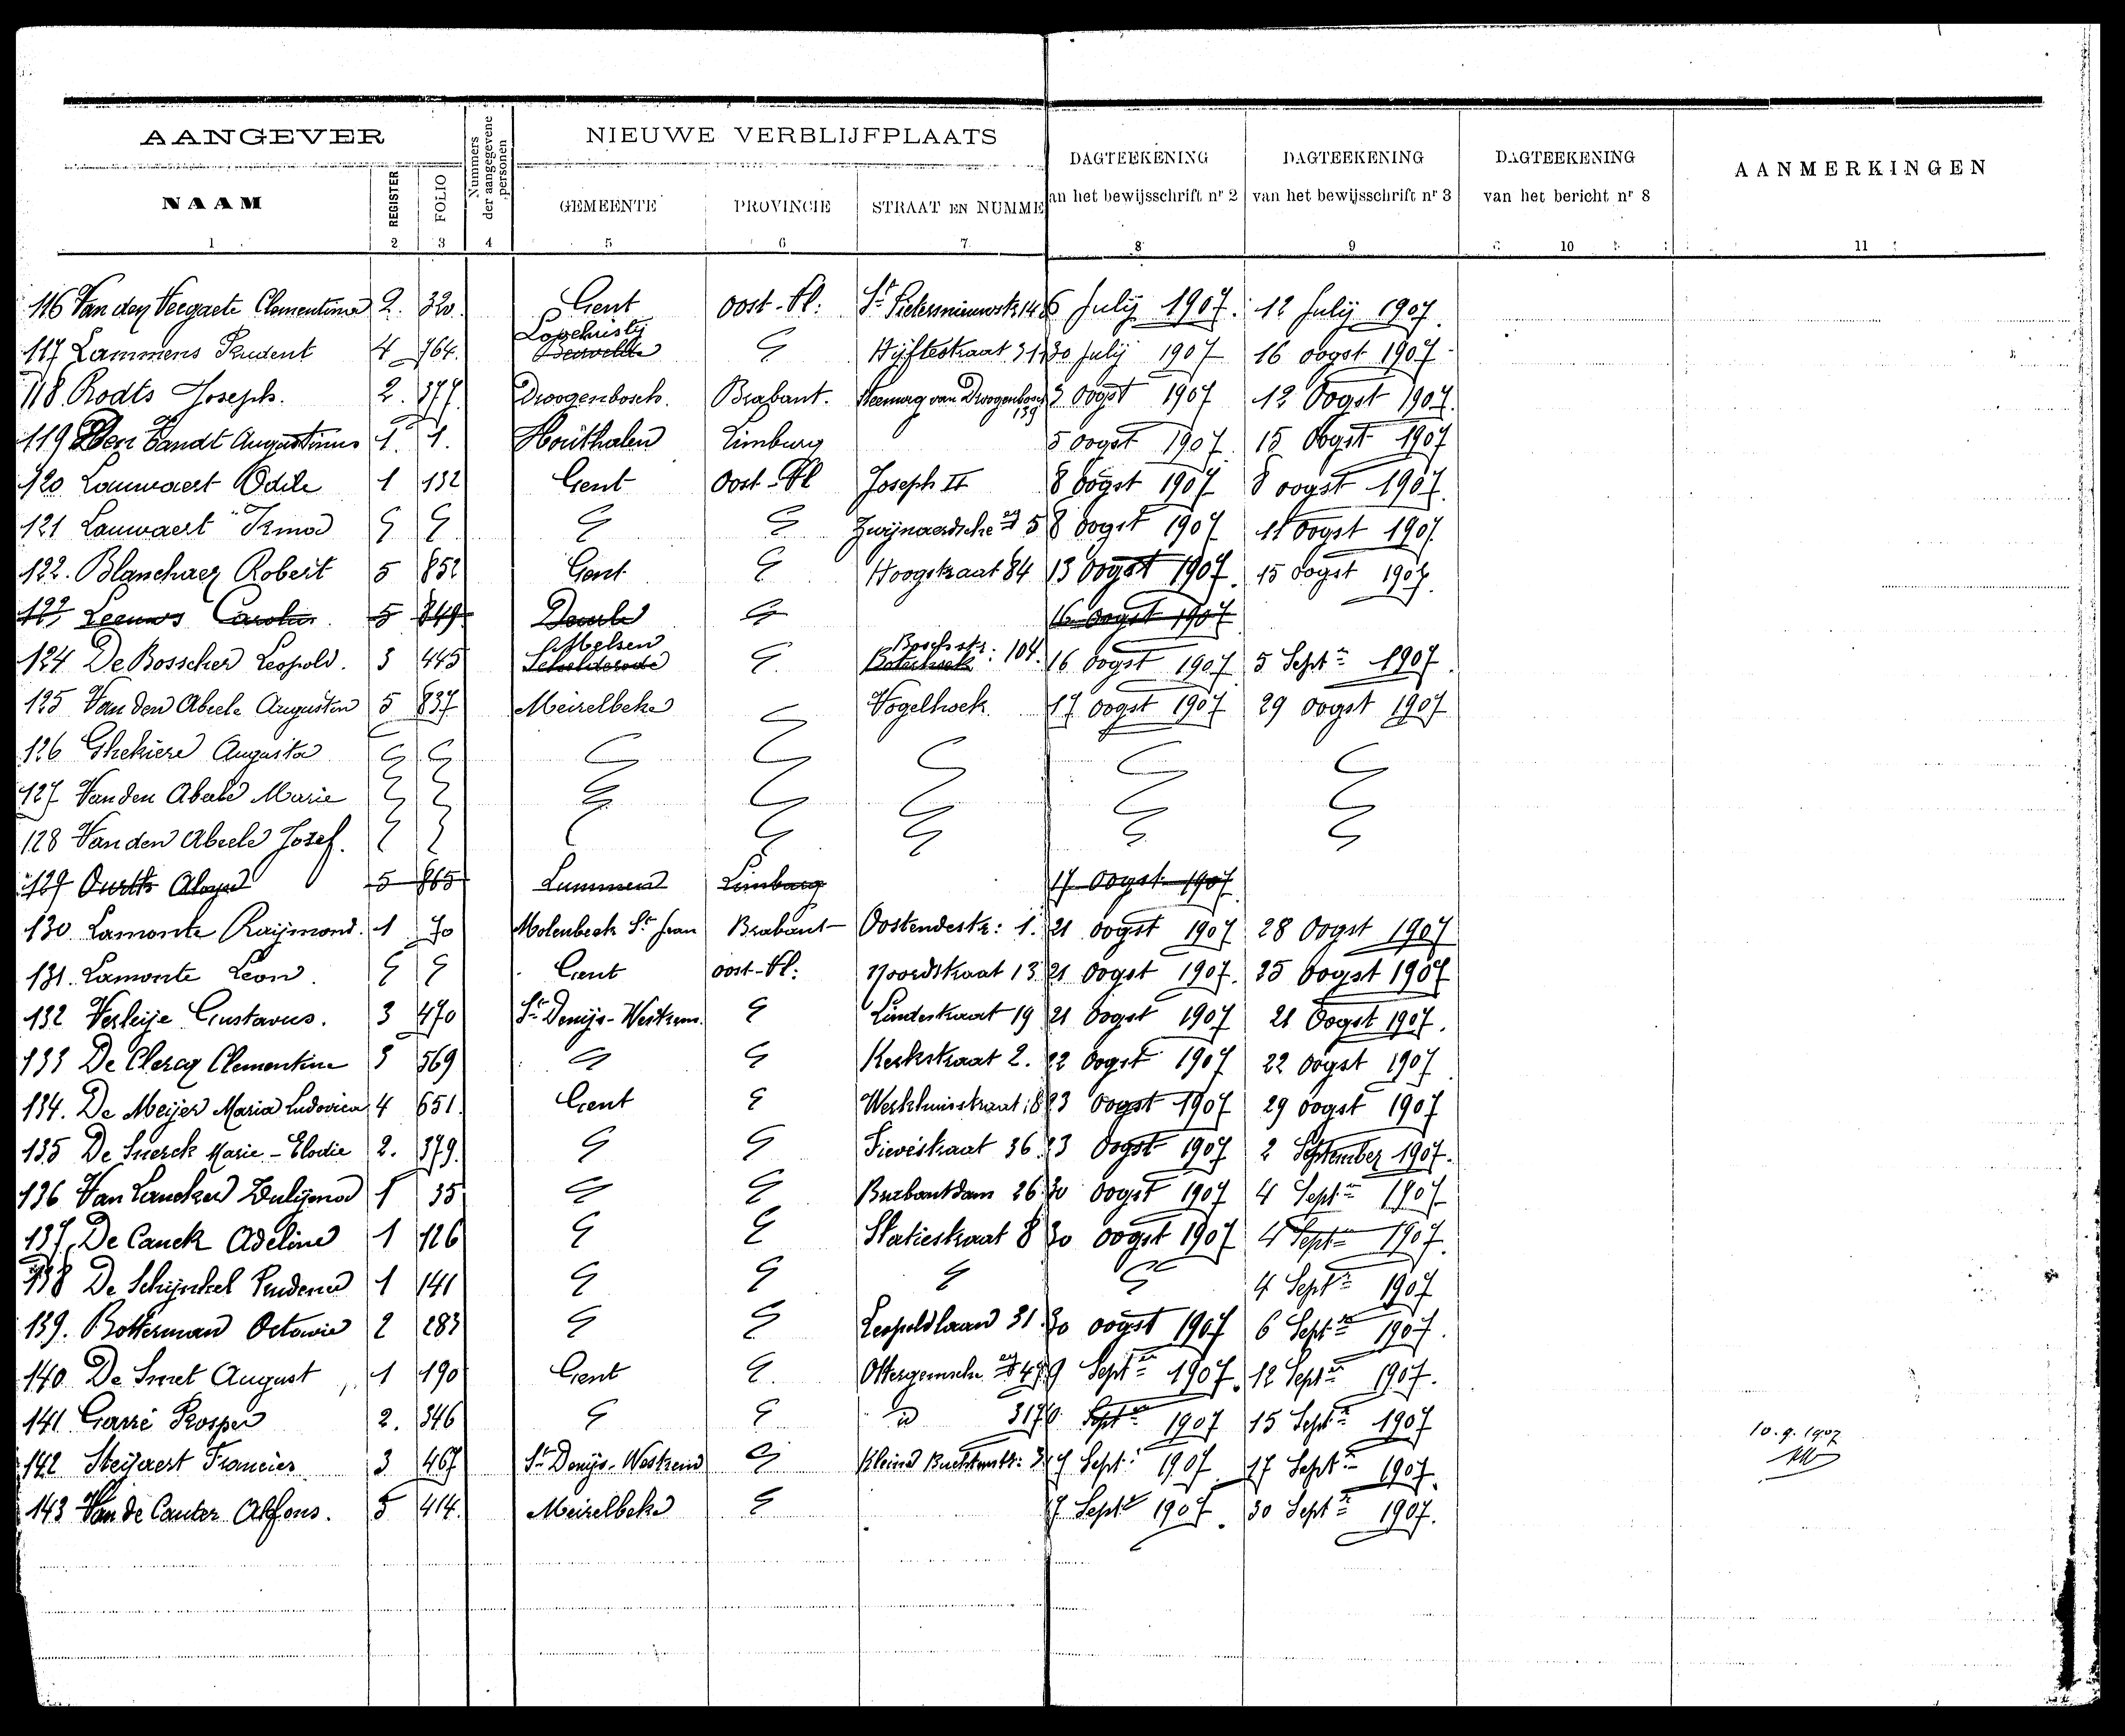 AANGEVER
Nummers der aangegevene personen
NIEUWE VERBLIJFPLAATS
DAGTEEKENING an het bewijsschrift nr 2
DAGTEEKENING van het bewijsschrift nr 3
DAGTEEKENING van het bericht nr 8
AANMERKINGEN
NAAM REGISTER FOLIO GEMEENTE PROVINCIE STRAAT EN NUMME
1 2 3 4 5 6 7 8 9 10 11
116 Van den Veegaete Clementina 2. 320. Gent Oost-Vl: St Pietersnieuwstr 14 6 July 1907. 12 July 1907.
117 Lammens Prudent 4 764. Lochristy Hijftestraat 31 30 July 1907 16 oogst 1907
118. Rodts Joseph. 2. 377. Droogenbosch. Brabant. Steenweg van Droogenbosch 139 3 Oogst 1907 12 Oogst 1907.
119 Den Tandt Augustinus 1. 1. Houthalen Limburg 5 oogst 1907. 15 Oogst 1907
120 Lauwaert Odile 1 132 Gent Oost-Vl Joseph II 8 oogst 1907 8 oogst 1907.
121 Lauwaert Irma Zwijnaardsche 5 8 oogst 1907 11 Oogst 1907.
122. Blanchaer Robert 5 852 Gent Hoogstraat 84 13 oogst 1907. 15 oogst 1907.
Leeuws Carolus. 5 849 Deurle 16 oogst 1907
124 De Bosscher Leopold. 3 445 Melsen Schelderode Boschstr: 104. 16 oogst 1907 5 Sept 1907
125 Van den Abeele Augustin 5 837 Meirelbeke Vogelhoek. 17 oogst 1907 29 oogst 1907
126 Ghekiere Augusta
127 Van den Abeele Marie
128 Van den Abeele Jozef.
129 5 865 Lummen Limburg 17 oogst 1907
130 Lamonte Raymond. 1 70 Molenbeek St Jean Brabant Oostendestr: 1. 21 oogst 1907 28 Oogst 1907
131. Lamonte Leon. Gent oost-Vl: Noordstraat 13 21 oogst 1907. 25 oogst 1907
132 Verleije Gustavus. 3 470 St Denijs-Westrem. Lindestraat 19 21 oogst 1907 21 Oogst 1907.
133 De Clercq Clementine 3 569 Kerkstraat 2. 22 oogst 1907 22 oogst 1907
134. De Meijer Maria Ludovica 4 651. Gent Werkhuisstraat 18 23 oogst 1907 29 oogst 1907
135 De Snerck Marie-Elodie 2. 379. Fievéstraat 36. 23 oogst 1907 2 September 1907.
136 Van Lancker Zulijma 1 35 Brabantdam 26 30 oogst 1907 4 Sept 1907.
137. De Canck Adeline 1 126 Statiestraat 8 30 oogst 1907 4 Sept 1907.
138 De Schijnkel Prudence 1 141 4 Sept 1907
139. Botterman Octavie 2 283 Leopoldlaan 31. 30 oogst 1907 6 Sept 1907.
140 De Smet August 1 190 Gent Ottergemsche 47 9 Sept 1907. 12 Sept 1907.
141 Garré Prosper 2. 346 id 317 Sept 1907 15 Sept 1907
10.9.1907
142 Steijaert Francies 3 467 St Denijs-Westrem Kleine Buchtenstr: 3 17 Sept 1907. 17 Sept 1907.
143 Van de Cauter Alfons. 5 414. Meirelbeke 17 Sept 1907. 30 Sept 1907.